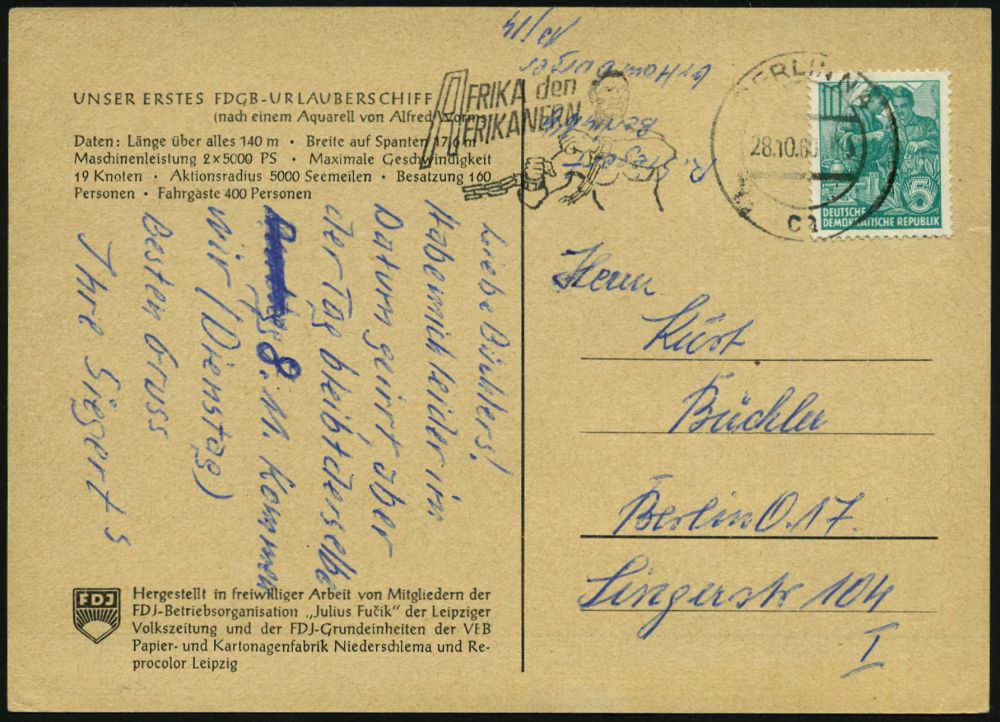 UNSER ERSTES FDGB-URLAUBERSCHIFF
(nach einem Aquarell von Alfred Worms
Daten: Länge über alles 140 m · Breite auf Spanten 17,6 m
Maschinenleistung 2×5000 PS · Maximale Geschwindigkeit
19 Knoten · Aktionsradius 5000 Seemeilen · Besatzung 160
Personen · Fahrgäste 400 Personen
Liebe Büchlers!
Habe mich leider im
Datum geirrt aber
der Tag bleibt derselbe
8. 11. kommen
wir (Dienstag)
Besten Gruss
Ihre Siegerts
Hergestellt in freiwilliger Arbeit von Mitgliedern der
FDJ-Betriebsorganisation „Julius Fučik“ der Leipziger
Volkszeitung und der FDJ-Grundeinheiten der VEB
Papier- und Kartonagenfabrik Niederschlema und Re-
procolor Leipzig
FDJ
R. Siegert
Berlin
13/14
AFRIKA den
AFRIKANERN
BERLIN N
28.10.60
ca
5
DEUTSCHE
DEMOKRATISCHE REPUBLIK
Herrn
Kurt
Büchler
Berlin O. 17.
Singerstr 104
I